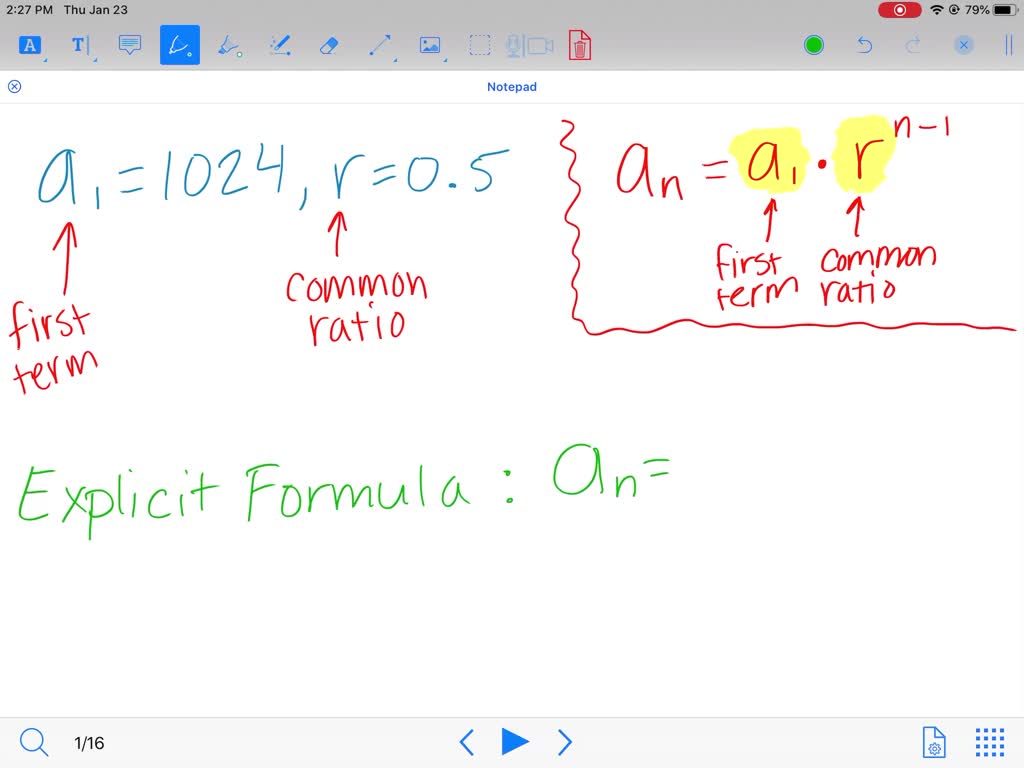 2:27 PM Thu Jan 23
79%
A T
Notepad
a₁ = 1024, r = 0.5
first
term
common
ratio
aₙ = a₁ · rⁿ⁻¹
first
term
common
ratio
Explicit Formula : aₙ =
1/16